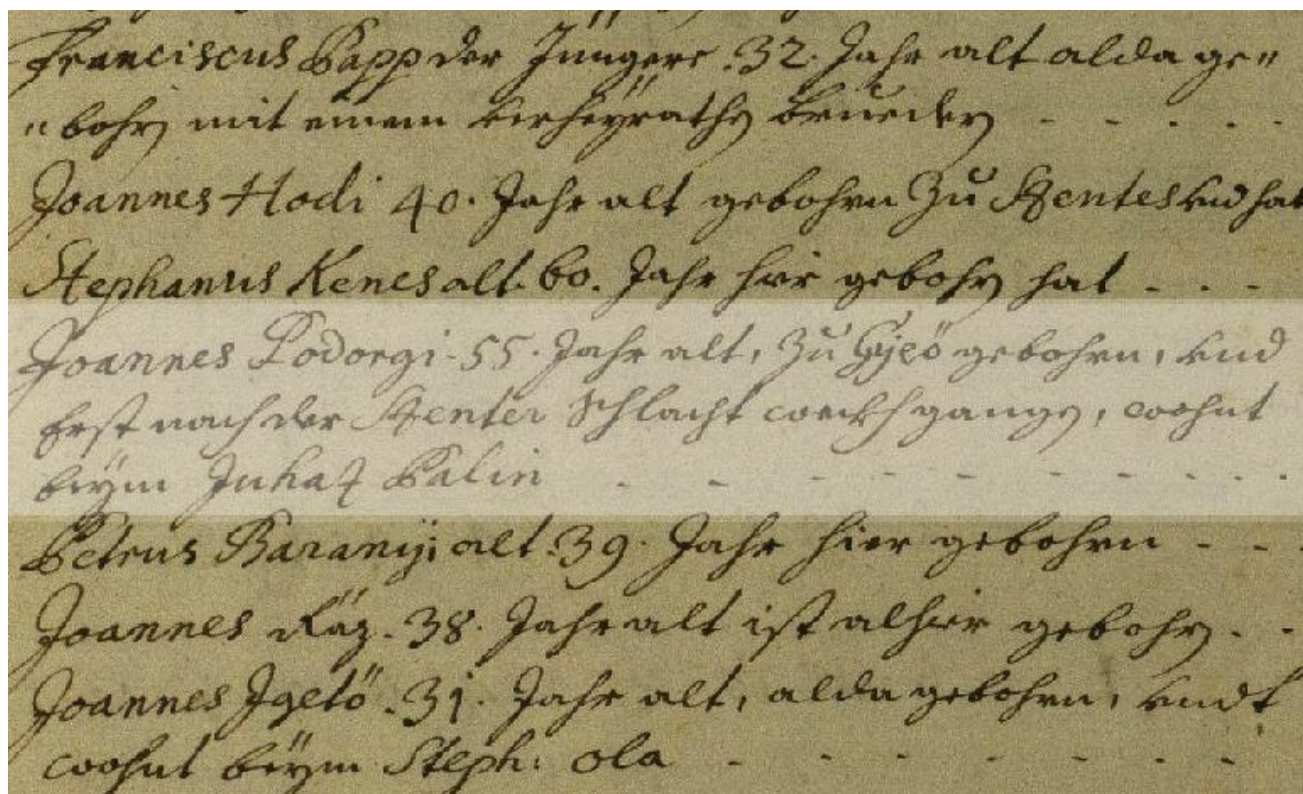 Franciscus Papp der Jüngere .32. Jahr alt alda ge"
"bohrn mit einem verheÿrathn bruedern - - - - -
Joannes Hodi 40. Jahr alt gebohrn Zu Szentes und hat
Stephanus Kenes alt. 60. Jahr hier gebohrn hat - - -
Joannes Podorgi. 55. Jahr alt, Zu Gyeö gebohrn, und
Erst nach der Szenter Schlacht weckhgangn, wohnt
beÿm Juhaz Balin - - - - - - - - -
Petrus Baranÿi alt .39. Jahr hier gebohrn - - -
Joannes Ráz. 38. Jahr alt ist alhier gebohrn. - -
Joannes Jgetö .31. Jahr alt, alda gebohrn, undt
wohnt beÿm Steph: Ola - - - - - -